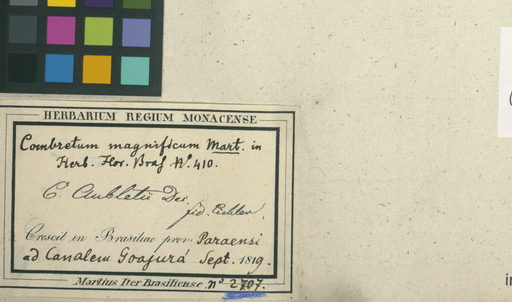 HERBARIUM REGIUM MONACENSE
Combretum magnificum Mart. in
Herb. Flor. Bras. No. 410.
C. Aubletii Dec.
fid. Eichler.
Crescit in Brasiliae prov. Paraensi
ad Canalem Goajurá Sept. 1819.
Martius Iter Brasiliense. no 2707.